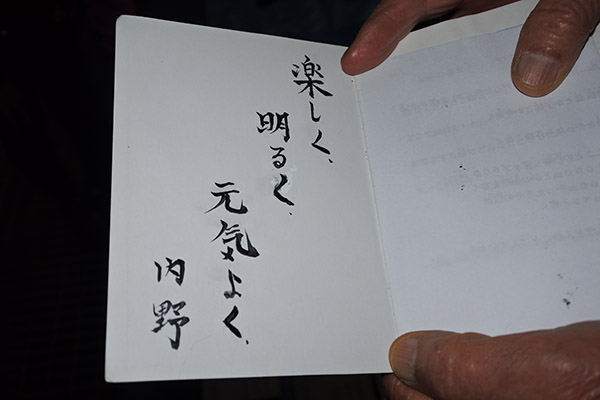 楽しく、
明るく、
元気よく、
内野